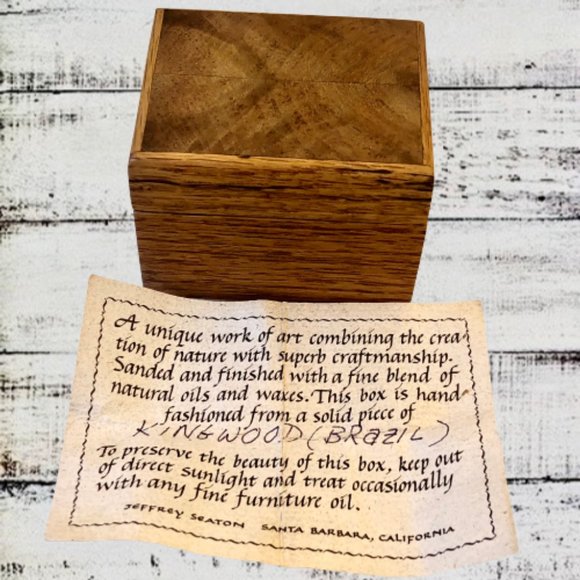 A unique work of art combining the crea-
tion of nature with superb craftmanship.
Sanded and finished with a fine blend of
natural oils and waxes. This box is hand
fashioned from a solid piece of
KINGWOOD (BRAZIL)
To preserve the beauty of this box, keep out
of direct sunlight and treat occasionally
with any fine furniture oil.
JEFFREY SEATON SANTA BARBARA, CALIFORNIA